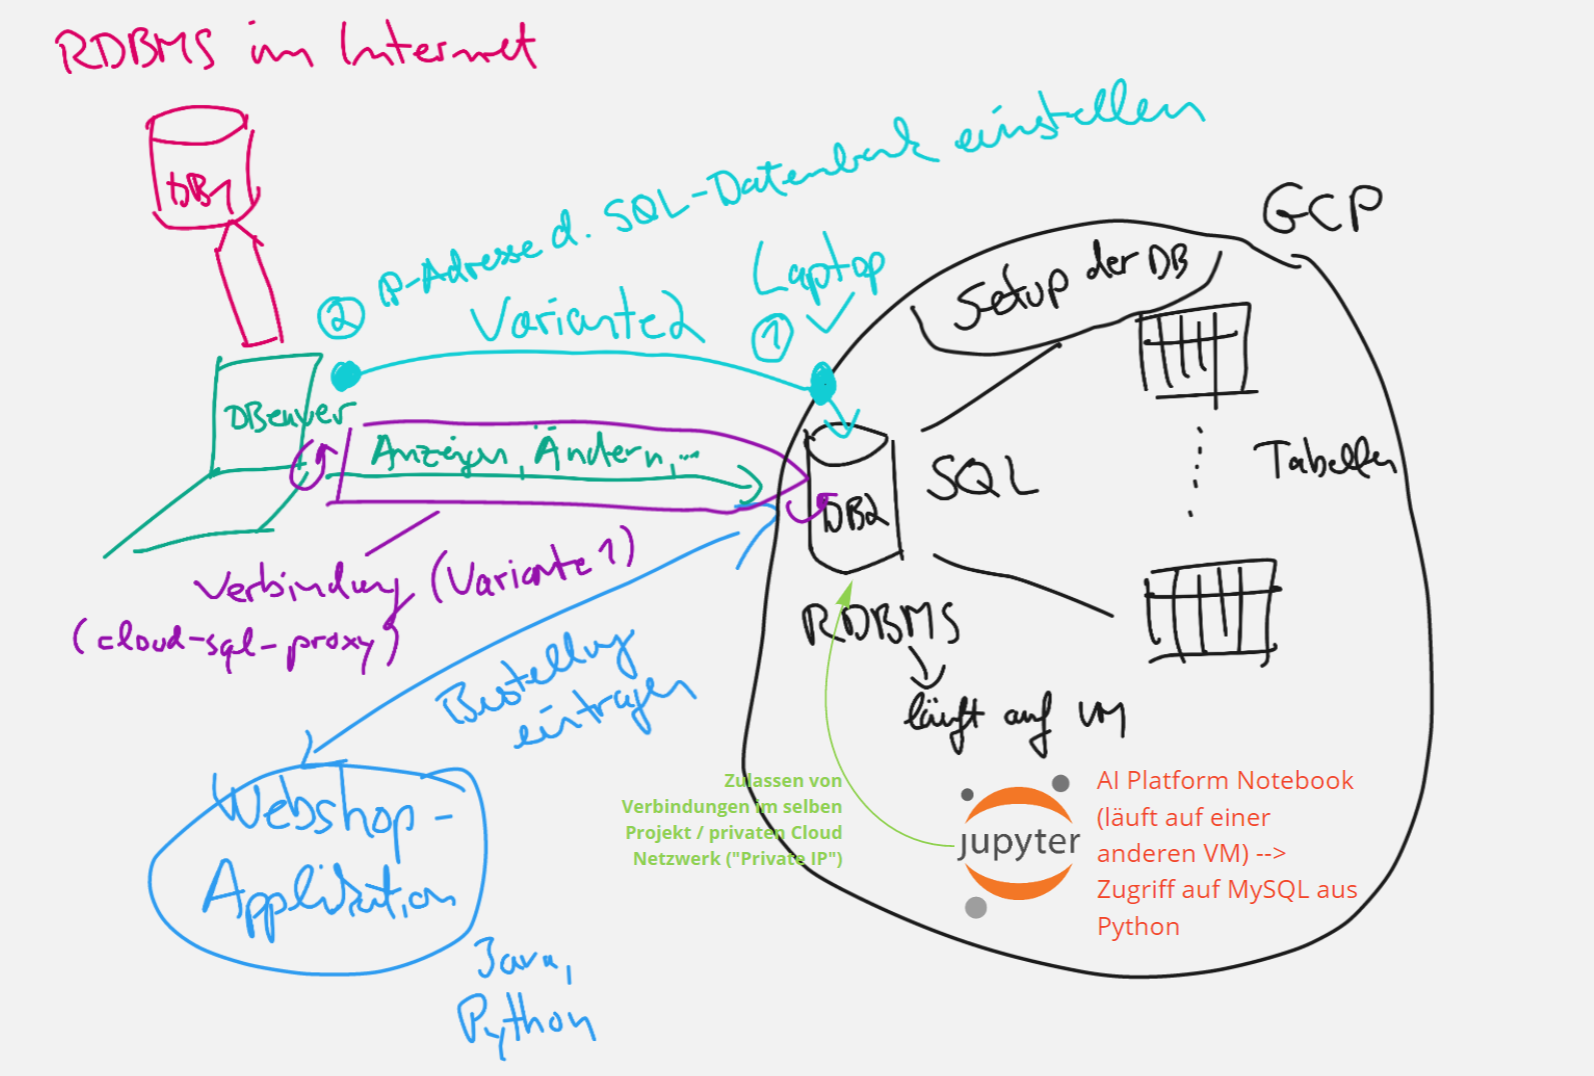 RDBMS im Internet
DB1
② IP-Adresse d. SQL-Datenbank einstellen
Variante 2
Laptop
①
GCP
Setup der DB
DBeaver
Anzeigen, Ändern, ...
DB2
SQL
Tabellen
Verbindung (Variante 1)
(cloud-sql-proxy)
RDBMS
läuft auf VM
Bestellung
eintragen
Webshop-
Applikation
Java,
Python
Zulassen von
Verbindungen im selben
Projekt / privaten Cloud
Netzwerk ("Private IP")
jupyter
AI Platform Notebook
(läuft auf einer
anderen VM) -->
Zugriff auf MySQL aus
Python